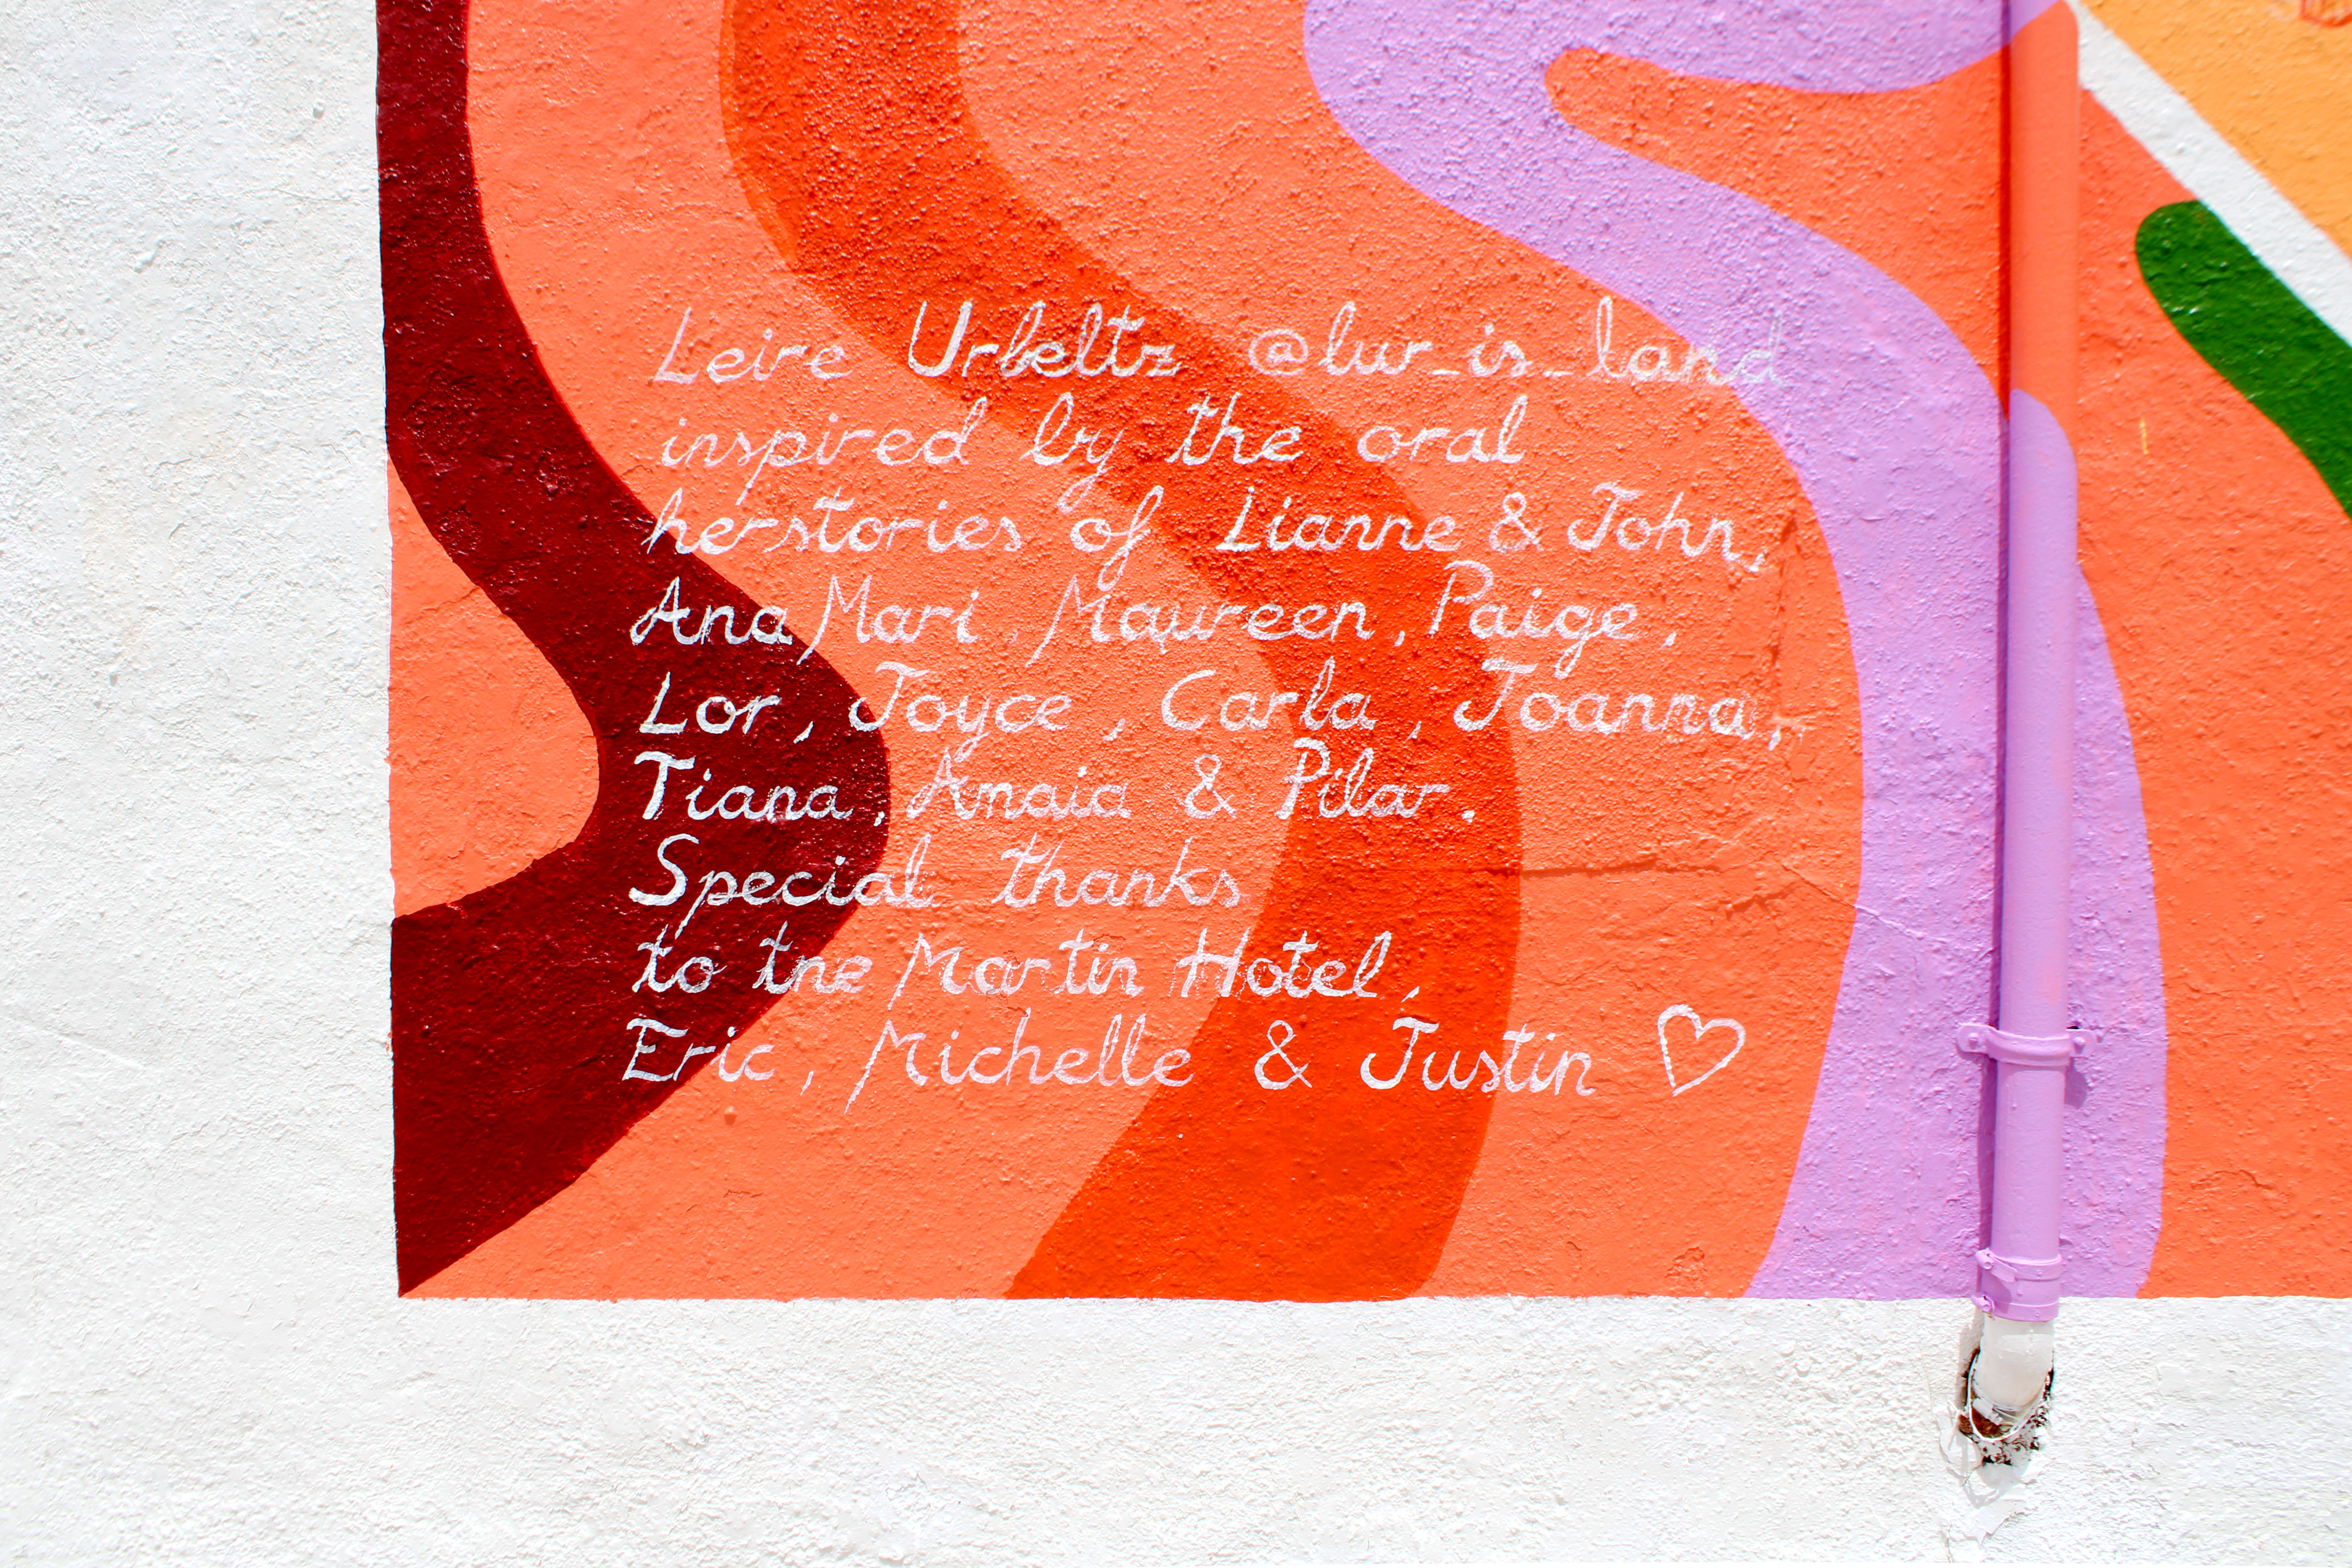 Leire Urbeltz @lur_is_land
inspired by the oral
herstories of Lianne & John,
Ana Mari, Maureen, Paige,
Lor, Joyce, Carla, Joanna,
Tiana, Amaia & Pilar.
Special thanks
to the Martin Hotel,
Eric, Michelle & Justin ♡